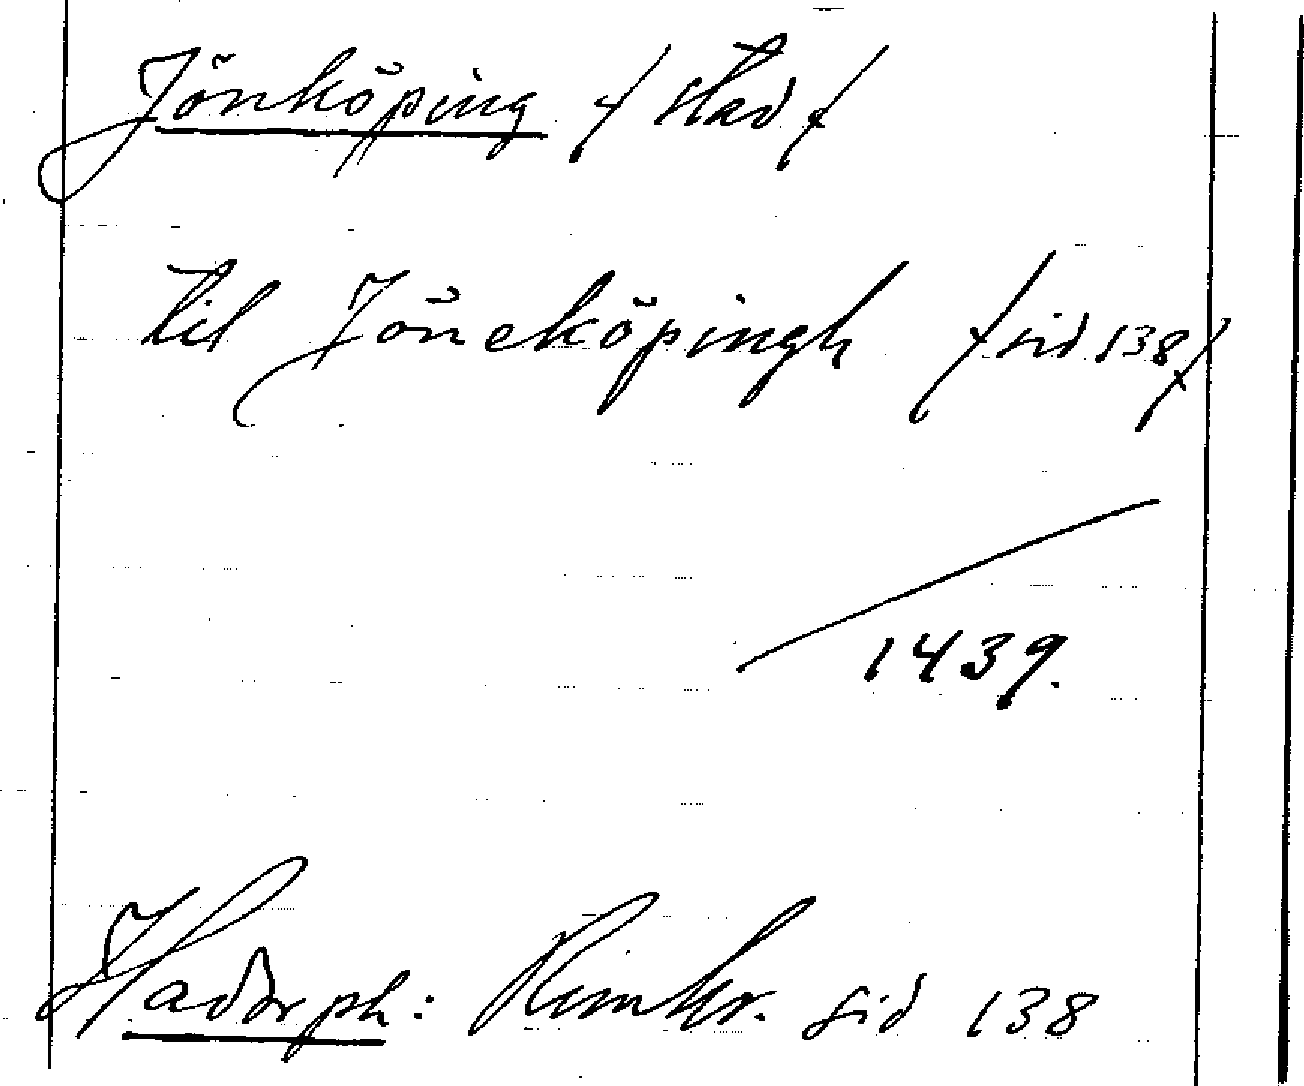 Jönköping /stad/
til Jöneköpingh /sid 138/
1439.
Hadorph: Rimkr. sid 138